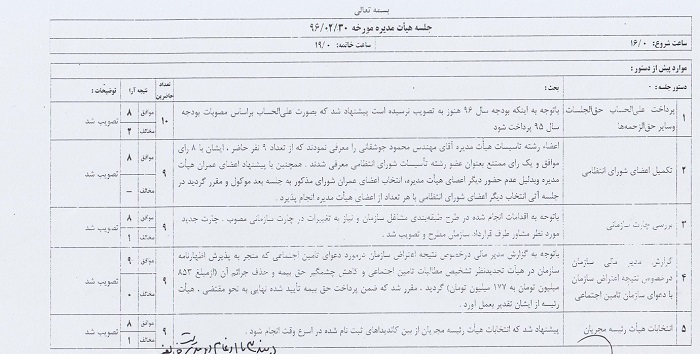 بسمه تعالی
جلسه هیأت مدیره مورخه ۹۶/۰۲/۳۰
ساعت شروع: ۱۶/۰
ساعت خاتمه: ۱۹/۰
موارد پیش از دستور:
دستور جلسه:
بحث:
تعداد حاضرین
نتیجه آرا
توضیحات:
۱
پرداخت علی‌الحساب حق‌الجلسات
وسایر حق‌الزحمه‌ها
باتوجه به اینکه بودجه سال ۹۶ هنوز به تصویب نرسیده است پیشنهاد شد که بصورت علی‌الحساب براساس مصوبات بودجه
سال ۹۵ پرداخت شود
۱۰
موافق ۸
مخالف ۲
تصویب شد
۲
تکمیل اعضای شورای انتظامی
اعضاء رشته تاسیسات هیأت مدیره آقای مهندس محمود جوشقانی را معرفی نمودند که از تعداد ۹ نفر حاضر، ایشان با ۸ رای
موافق و یک رای ممتنع بعنوان عضو رشته تأسیسات شورای انتظامی معرفی شدند . همچنین با پیشنهاد اعضای عمران هیأت
مدیره وبدلیل عدم حضور دیگر اعضای هیأت مدیره، انتخاب اعضای عمران شورای مذکور به جلسه بعد موکول و مقرر گردید در
جلسه آتی انتخاب دیگر اعضای شورای انتظامی با هر تعداد از اعضاء هیأت مدیره انجام پذیرد .
۹
موافق ۸
مخالف –
تصویب شد
۳
بررسی چارت سازمانی
باتوجه به اقدامات انجام شده در طرح طبقه‌بندی مشاغل سازمان و نیاز به تغییرات در چارت سازمانی مصوب . چارت جدید
مورد نظر مشاور طرف قرارداد سازمان مطرح و تصویب شد .
۹
موافق ۸
مخالف ۱
تصویب شد
۴
گزارش مدیر مالی سازمان
درخصوص نتیجه اعتراض سازمان
با دعوای سازمان تامین اجتماعی
باتوجه به گزارش مدیر مالی درخصوص نتیجه اعتراض سازمان درمورد دعوای تامین اجتماعی که منجر به پذیرش اظهارنامه
سازمان در هیأت تجدیدنظر تشخیص مطالبات تامین اجتماعی و کاهش چشمگیر حق بیمه و حذف جرائم آن (ازمبلغ ۸۵۳
میلیون تومان به ۱۷۷ میلیون تومان) گردید . مقرر شد که ضمن پرداخت حق بیمه تأیید شده نهایی به نحو مقتضی ، هیأت
رئیسه از ایشان تقدیر بعمل آورد .
۹
موافق ۹
مخالف ۰
تصویب شد
۵
انتخابات هیأت رئیسه مجریان
پیشنهاد شد که انتخابات هیأت رئیسه مجریان از بین کاندیداهای ثبت نام شده در اسرع وقت انجام شود .
۹
موافق ۸
مخالف ۱
تصویب شد